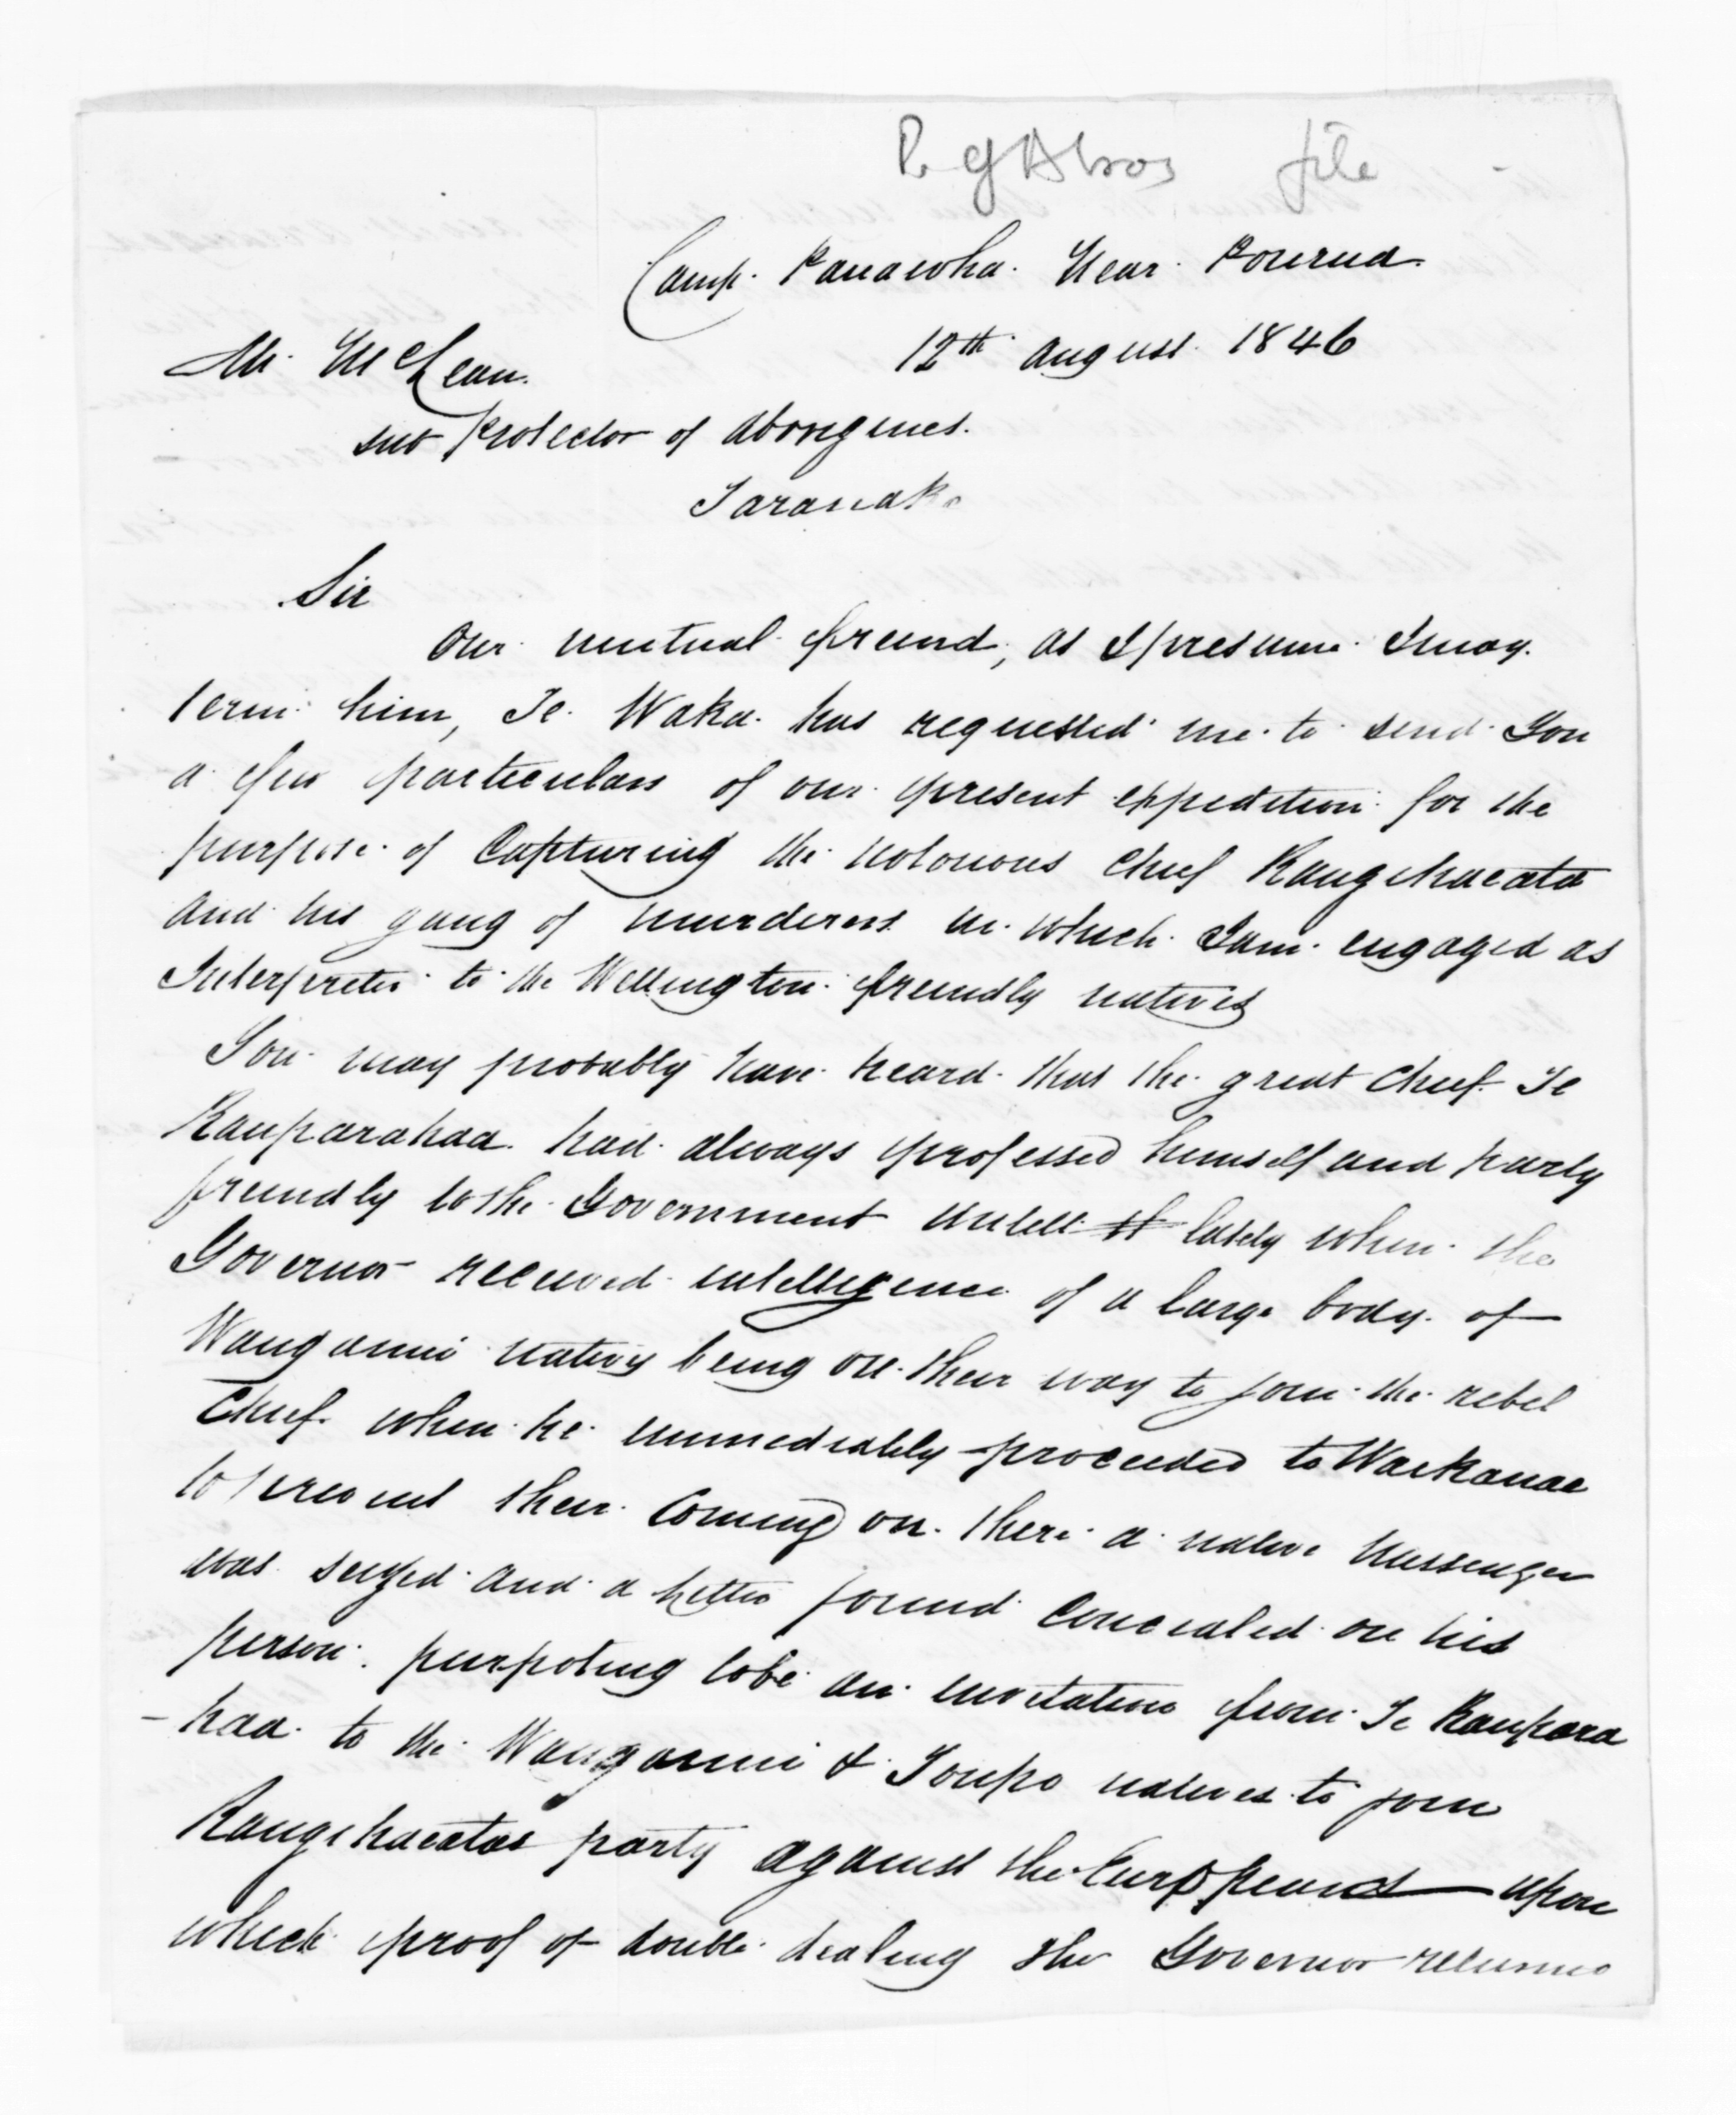 file
Camp. Pauawha. Near. Pourua.
12th August. 1846
Mr. McLean.
sub Protector of Aborigines.
Taranaki
Sir
Our mutual freind, as I presume I may.
term him, Te Waka. has requested me to send You
a few particulars of our present expedition for the
purpose of Capturing the notorious Chief Rangihaeata
and his gang of murderers in which I am engaged as
Interpreter to the Wellington freindly natives
You may probably have heard that the great Chief Te
Rauparahaa had always professed himself and party
freindly to the Government untill lately when the
Governor received intelligence of a large body of
Wanganui natives being on their way to join the rebel
Chief when he immediately proceeded to Waikanae
to prevent their Coming on. there a native Messenger
was seized and a letter found Concealed on his
person. purpoting to be an invitation from Te Raupara
-haa to the Wanganui & Toupo natives to join
Rangihaeatas party against the Europpeans — upon
which proof of double dealing the Governor returned